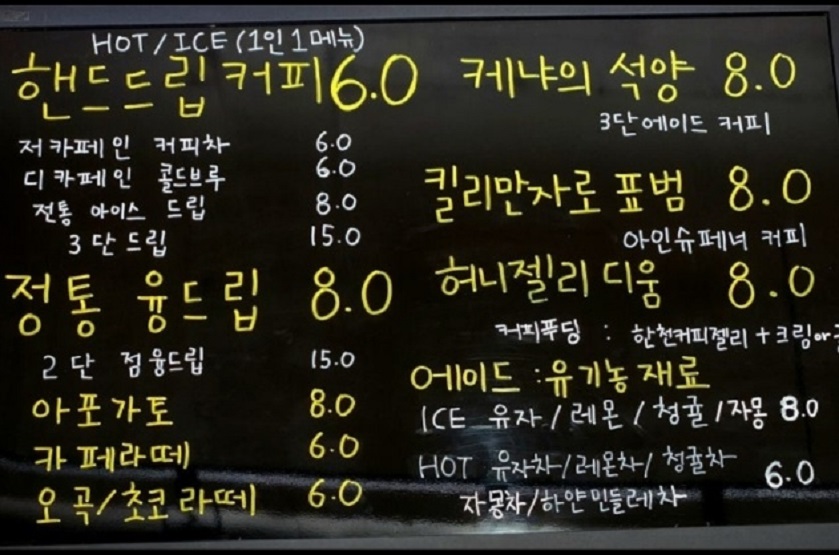 HOT/ICE (1인1메뉴)
핸드드립 커피 6.0
저카페인 커피차 6.0
디카페인 콜드브루 6.0
전통 아이스 드립 8.0
3단드립 15.0
정통 융드립 8.0
2단 점융드립 15.0
아포가토 8.0
카페라떼 6.0
오곡/초코라떼 6.0
케냐의 석양 8.0
3단에이드 커피
킬리만자로 표범 8.0
아인슈페너 커피
허니젤리 디움 8.0
커피푸딩 : 한천커피젤리+크림or
에이드:유기농재료
ICE 유자/레몬/청귤/자몽 8.0
HOT 유자차/레몬차/청귤차
자몽차/하얀민들레차 6.0